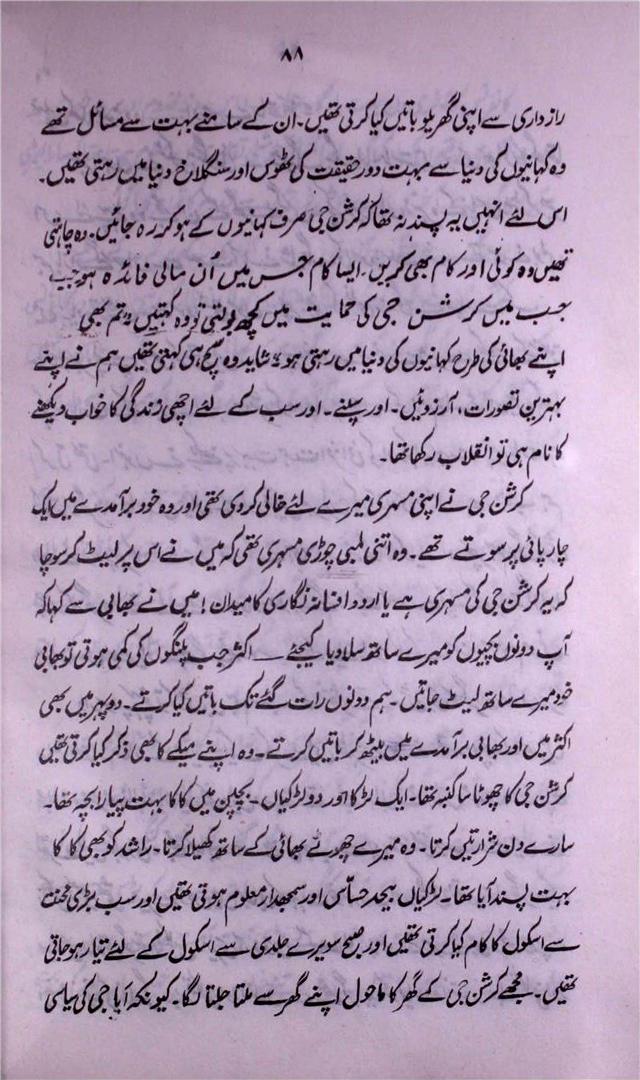 ۸۸
رازداری سے اپنی گھریلو باتیں کیا کرتی تھیں۔ ان کے سامنے بہت سے مسائل تھے
وہ کہانیوں کی دنیا سے بہت دور حقیقت کی ٹھوس اور سنگلاخ دنیا میں رہتی تھیں۔
اس لئے انہیں یہ پسند نہ تھا کہ کرشن جی صرف کہانیوں کے ہو کر رہ جائیں۔ وہ چاہتی
تھیں وہ کوئی اور کام بھی کریں۔ ایسا کام جس میں اُن سالی فائدہ ہو جب
جب میں کرشن جی کی حمایت میں کچھ بولتی تو وہ کہتیں "تم بھی
اپنے بھائی کی طرح کہانیوں کی دنیا میں رہتی ہو" شاید وہ سچ ہی کہتی تھیں ہم نے اپنے
بہترین تصورات، آرزوئیں۔ اور سپنے۔ اور سب کے لئے اچھی زندگی کا خواب دیکھنے
کا نام ہی تو انقلاب رکھا تھا۔
کرشن جی نے اپنی مسہری میرے لئے خالی کر دی تھی اور وہ خود برآمدے میں ایک
چارپائی پر سوتے تھے۔ وہ اتنی لمبی چوڑی مسہری تھی کہ میں نے اس پر لیٹ کر سوچا
کہ یہ کرشن جی کی مسہری ہے یا اردو افسانہ نگاری کا میدان! میں نے بھابی سے کہا کہ
آپ دونوں بچیوں کو میرے ساتھ سلا دیا کیجئے — اکثر جب پلنگوں کی کمی ہوتی تو بھابی
خود میرے ساتھ لیٹ جاتیں۔ ہم دونوں رات گئے تک باتیں کیا کرتے۔ دوپہر میں بھی
اکثر میں اور بھابی برآمدے میں بیٹھ کر باتیں کرتے۔ وہ اپنے میکے کا بھی ذکر کیا کرتی تھیں
کرشن جی کا چھوٹا سا کنبہ تھا۔ ایک لڑکا اور دو لڑکیاں۔ بچپن میں کاکا بہت پیارا بچہ تھا۔
سارے دن شرارتیں کرتا۔ وہ میرے چھوٹے بھائی کے ساتھ کھیلا کرتا۔ راشد کو بھی کاکا
بہت پسند آیا تھا۔ لڑکیاں بیحد حساس اور سمجھدار معلوم ہوتی تھیں اور سب بڑی محنت
سے اسکول کا کام کیا کرتی تھیں اور صبح سویرے جلدی سے اسکول کے لئے تیار ہو جاتی
تھیں۔ مجھے کرشن جی کے گھر کا ماحول اپنے گھر سے ملتا جلتا لگا۔ کیونکہ آپا جی کی